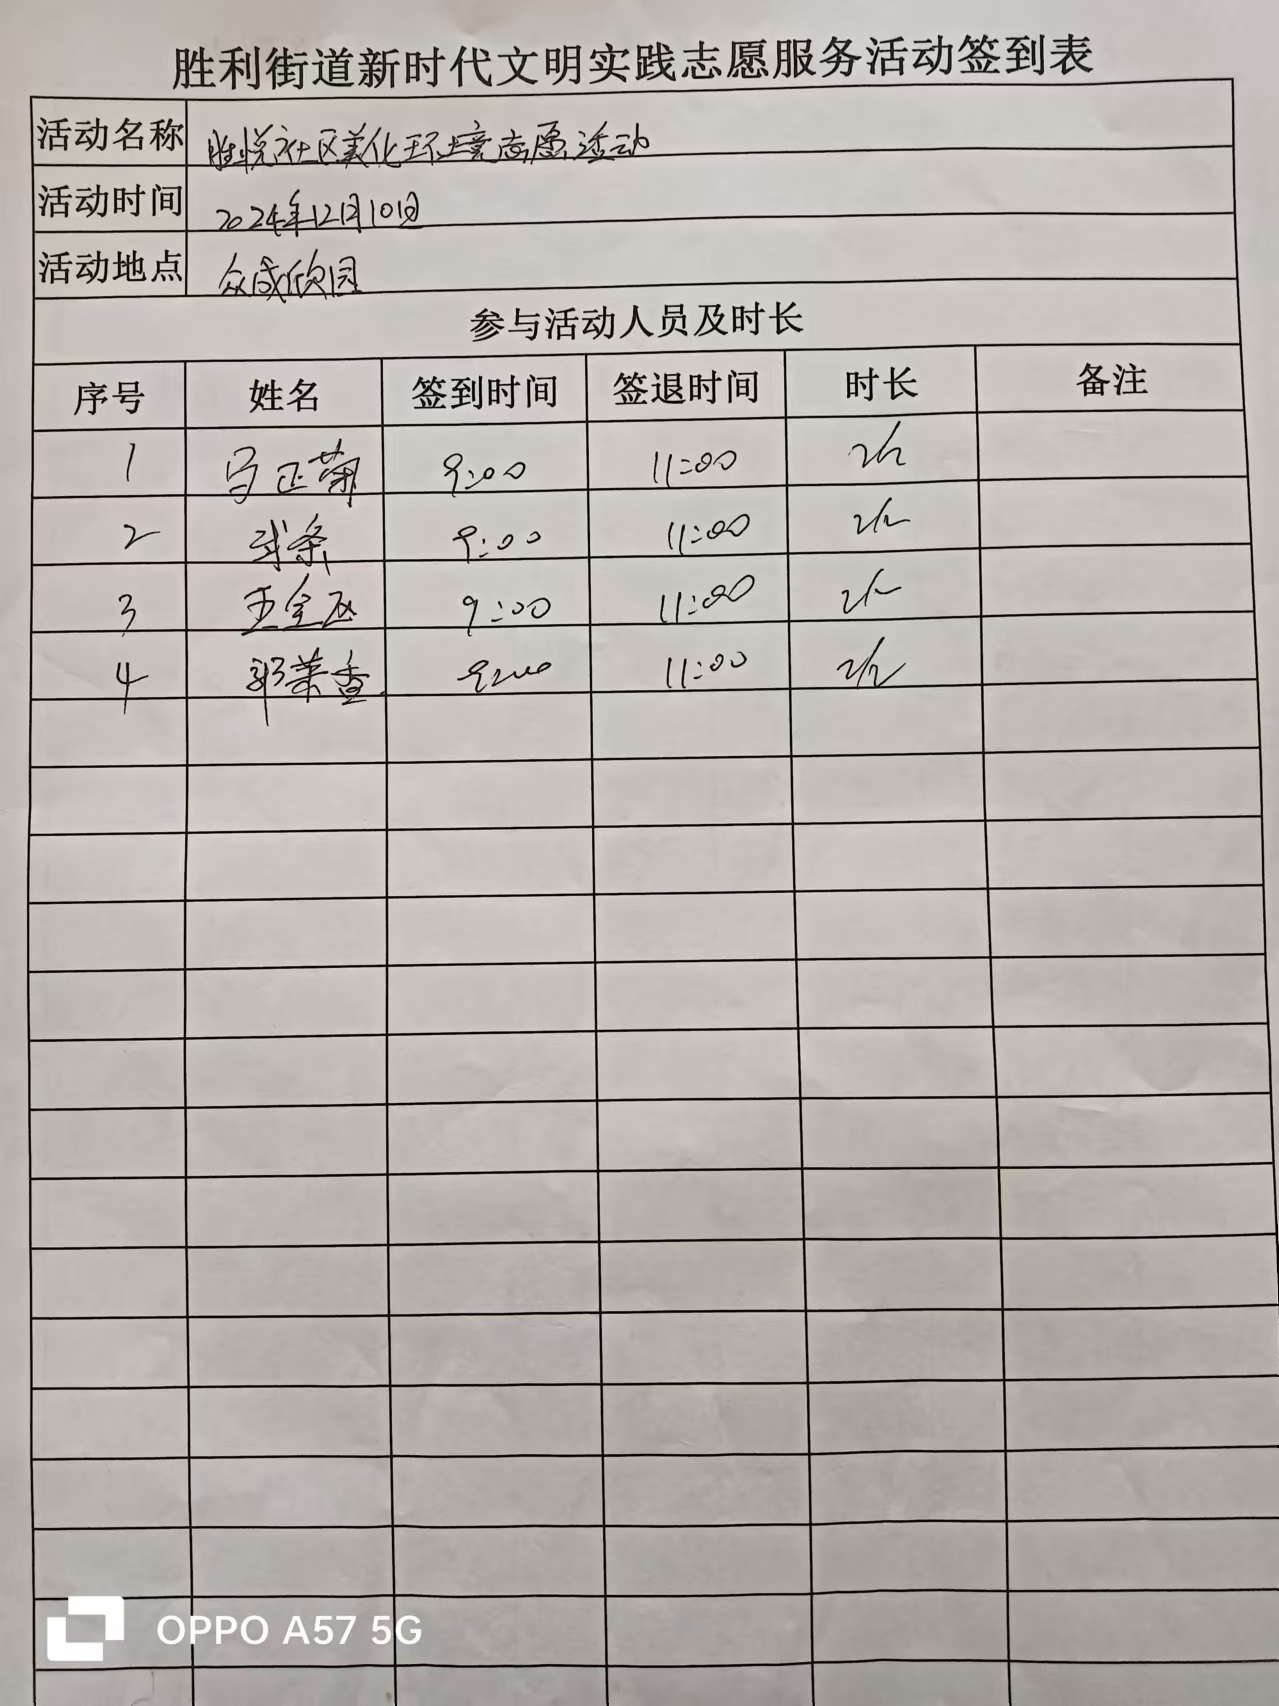 胜利街道新时代文明实践志愿服务活动签到表
活动名称 胜悦社区美化环境志愿活动
活动时间 2024年12月10日
活动地点 众成欣园
参与活动人员及时长
序号 姓名 签到时间 签退时间 时长 备注
1 马正菊 9:00 11:00 2h
2 9:00 11:00 2h
3 王金 9:00 11:00 2h
4 郭荣香 9:00 11:00 2h
OPPO A57 5G